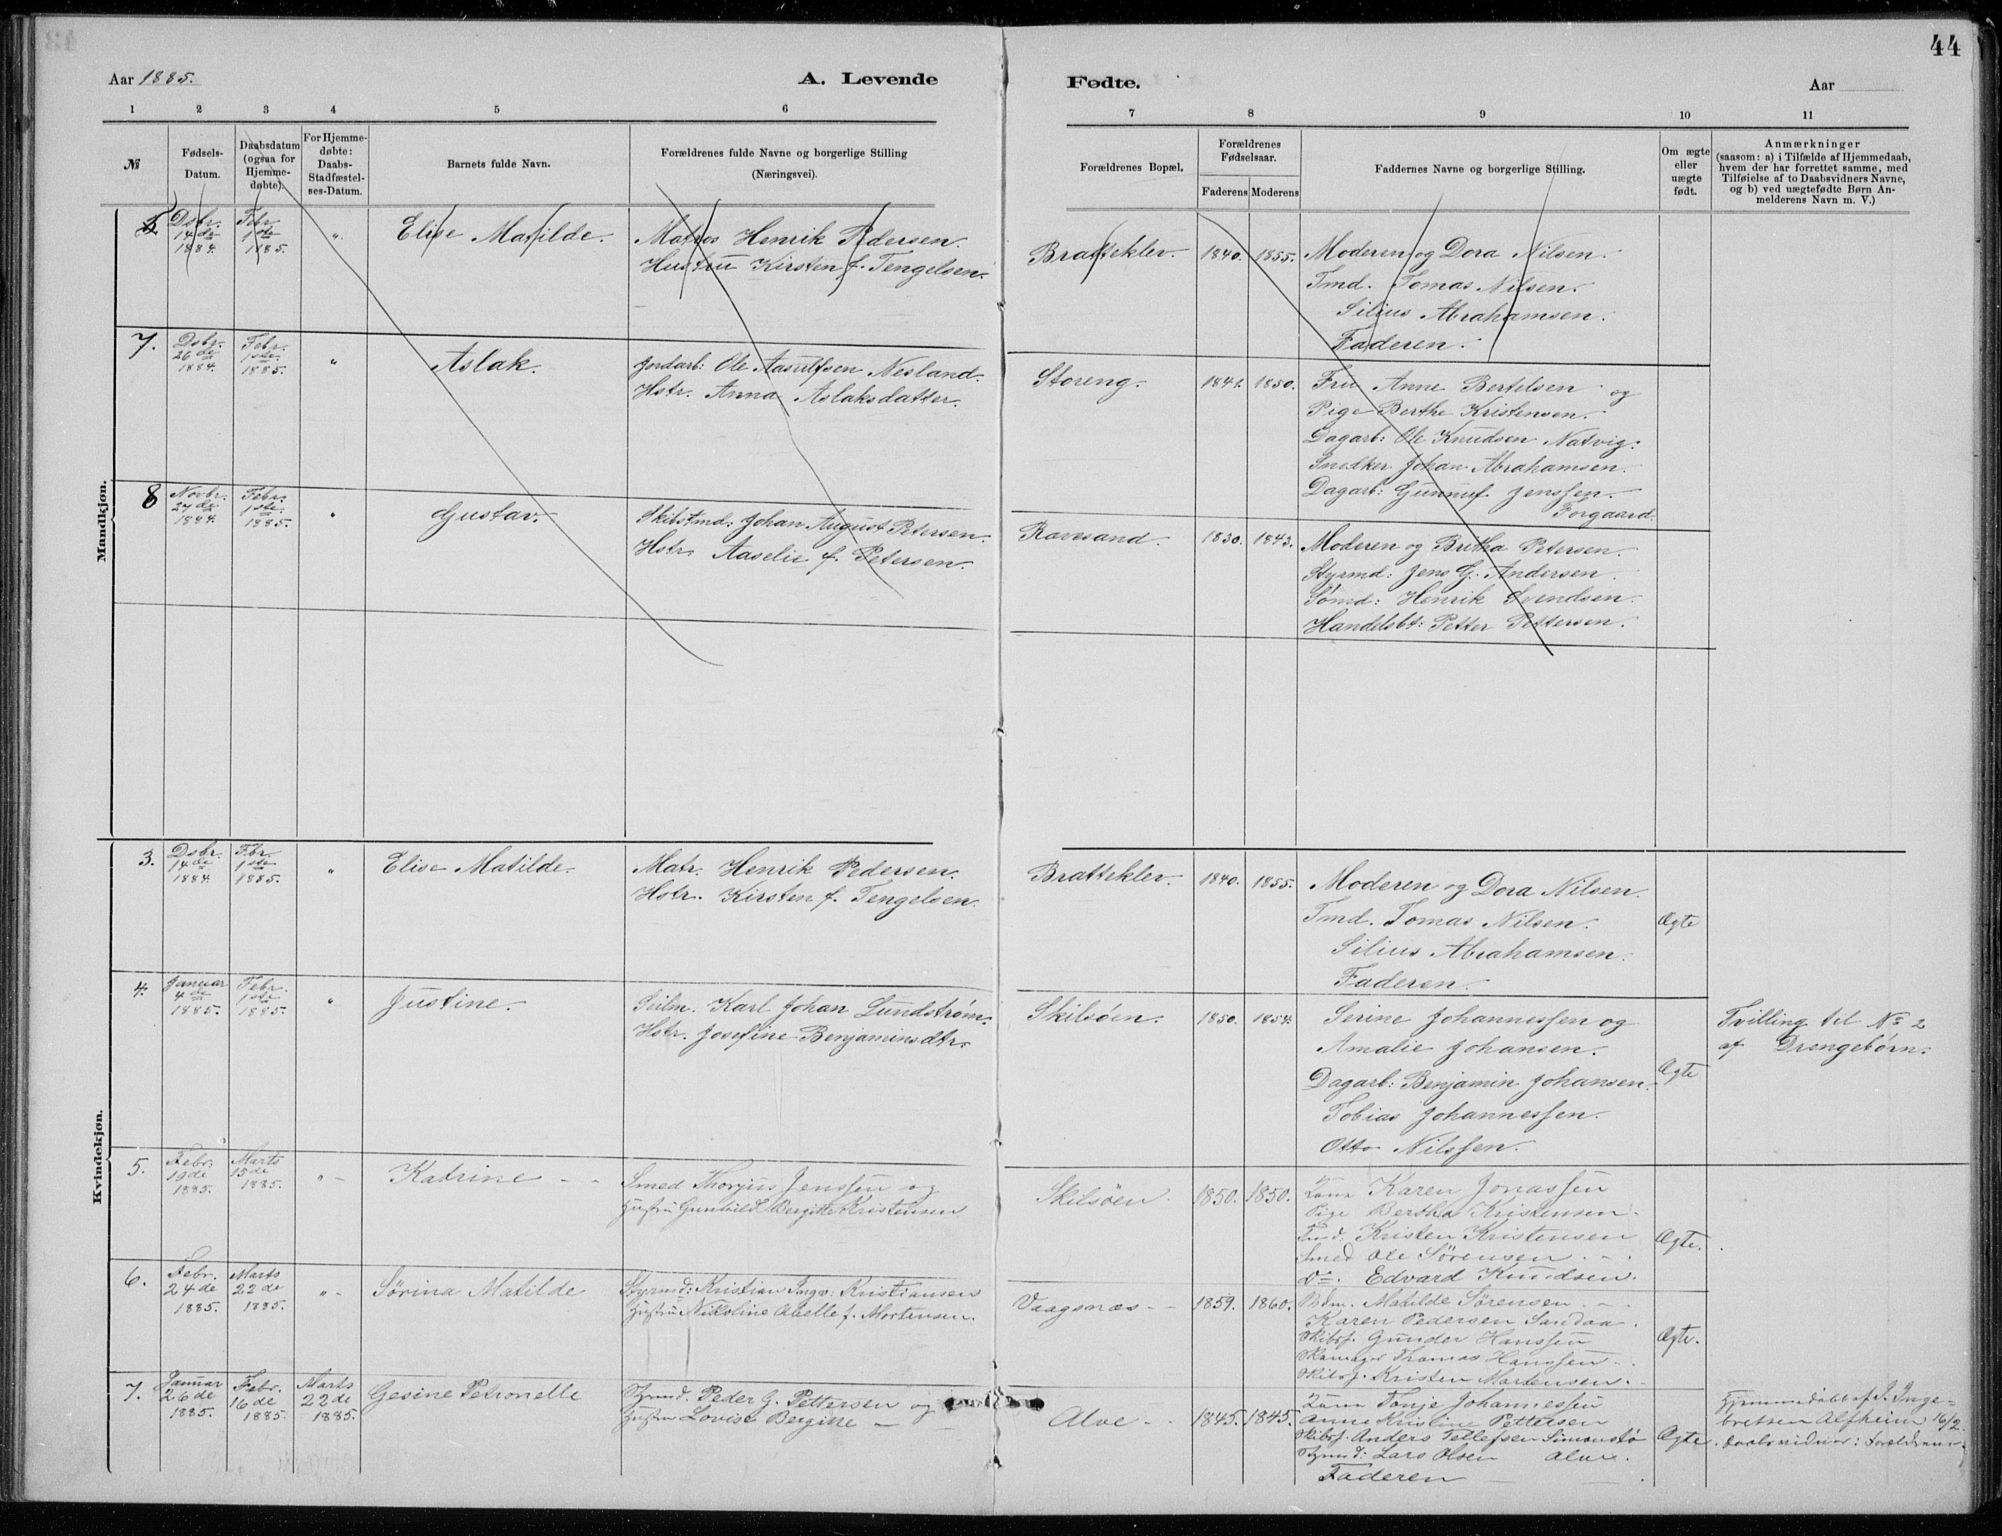 44
Aar 1885.
A. Levende
Fødte.
Aar
1 2 3 4 5 6 7 8 9 10 11
№
Fødsels-
Datum.
Daabsdatum
(ogsaa for
Hjemme-
døbte).
For Hjemme-
døbte:
Daabs-
Stadfæstel-
ses-Datum.
Barnets fulde Navn.
Forældrenes fulde Navne og borgerlige Stilling
(Næringsvei).
Forældrenes Bopæl.
Forældrenes
Fødselsaar.
Faderens Moderens
Faddernes Navne og borgerlige Stilling.
Om ægte
eller
uægte
født.
Anmærkninger
(saasom: a) i Tilfælde af Hjemmedaab,
hvem der har forrettet samme, med
Tilføielse af to Daabsvidners Navne,
og b) ved uægtefødte Børn An-
melderens Navn m. V.)
Mandkjøn.
Dsbr.
14de
1884.
Febr.
1ste
1885.
"
Elise Matilde.
Matros Henrik Pedersen.
Hustru Kirsten f. Tengelsen.
Bratteklev.
1840. 1855.
Moderen og Dora Nilsen.
Tmd. Tomas Nilsen.
Silius Abrahamsen.
Faderen.
7.
Dsbr.
26de
1884.
Febr.
1ste
1885.
"
Aslak.
Jordarb: Ole Aasulfsen Nesland.
Hstr. Anna Aslaksdatter.
Storeng.
1841. 1850.
Fru Anne Bertelsen og
Pige Berthe Kristensen.
Dagarb: Ole Knudsen Natvig.
Snedker Johan Abrahamsen.
Dagarb: Gunnuf Jenssen
Torgaard.
8
Novbr.
27de
1884.
Febr.
1ste
1885.
"
Gustav.
Skibstmd: Johan August Petersen.
Hstr. Aaselie f. Petersen.
Ravesand.
1830. 1843.
Moderen og Bretha Petersen.
Styrmd: Jens G. Andersen.
Sømd: Henrik Svendsen.
Handelsbt: Petter Pettersen.
Kvindekjøn.
3.
Dsbr.
14de
1884.
Fbr.
1ste
1885.
"
Elise Matilde.
Matr. Henrik Pedersen.
Hstr. Kirsten f. Tengelsen.
Bratteklev.
1840. 1855.
Moderen og Dora Nilsen.
Tmd. Tomas Nilsen.
Silius Abrahamsen.
Faderen.
Ægte
4.
Januar
4de
1885.
Febr.
1ste
1885.
"
Justine.
Seilm. Karl Johan Lundstrøm.
Hstr. Josefine Benjaminsdtr.
Skilsøen.
1850. 1854.
Serine Johannessen og
Amalie Johansen.
Dagarb: Benjamin Johansen.
Tobias Johannessen.
Otto Nilssen.
Ægte
Tvilling til No 2
af Drengebørn.
5.
Febr.
19de
1885.
Marts
15de
1885.
"
Katrine
Smed Thorjus Jenssen og
Hustru Gunhild Bergitte Kristensen
Skilsöen
1850. 1850.
Karen Jonassen
Pige Bertha Kristensen
Tmd. Kristen Kristensen
Smed Ole Sörensen
Do. Edvard Knudsen.
Ægte.
6.
Febr.
24de
1885.
Marts
22de
1885.
"
Sørina Matilde
Styrmd: Kristian Kristiansen
Hustru Nikoline f. Mortensen.
Vaagsnæs
1859. 1860.
Matilde Sörensen
Karen Pedersen Sandaa.
Skibsf. Gunder Hanssen
Thomas Hanssen
Skibsf. Kristen Martensen.
Ægte.
7.
Januar
26de
1885.
Febr.
16de
1885.
Marts
22de
1885.
Gesine Petronelle
Peder G. Pettersen og
Hustru Lovise Bergitte
Alve
1845. 1845.
Tonje Johannessen
Anne Kristine Pettersen
Skibsf. Anders Tellefsen Simonstø
Lars Olsen Alve.
Faderen
Ægte
Hjemmedøbt af J. Inge-
bretsen Alfheim 16/2.
Daabsvidner: Forældrene